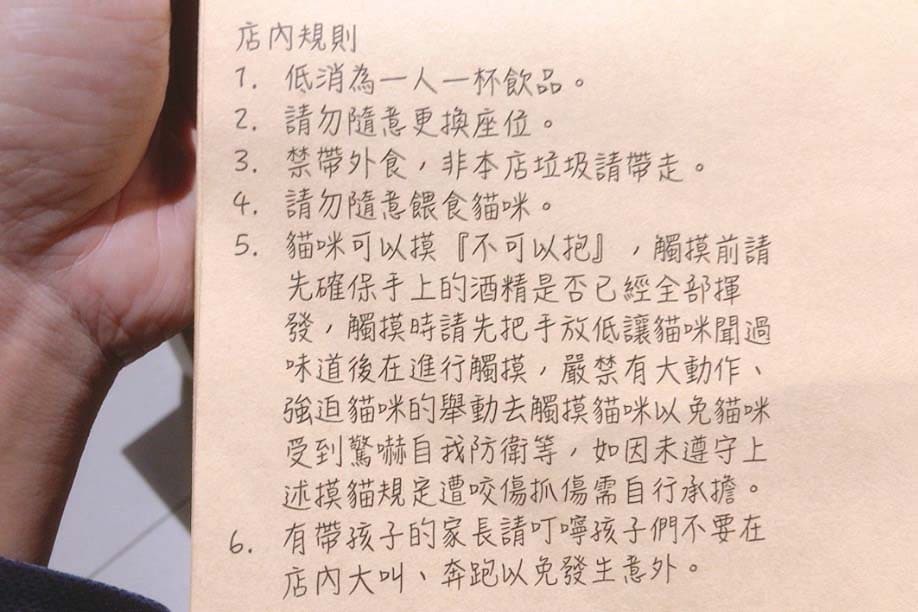 店內規則
1. 低消為一人一杯飲品。
2. 請勿隨意更換座位。
3. 禁帶外食，非本店垃圾請帶走。
4. 請勿隨意餵食貓咪。
5. 貓咪可以摸『不可以抱』，觸摸前請
先確保手上的酒精是否已經全部揮
發，觸摸時請先把手放低讓貓咪聞過
味道後在進行觸摸，嚴禁有大動作、
強迫貓咪的舉動去觸摸貓咪以免貓咪
受到驚嚇自我防衛等，如因未遵守上
述摸貓規定遭咬傷抓傷需自行承擔。
6. 有帶孩子的家長請叮嚀孩子們不要在
店內大叫、奔跑以免發生意外。